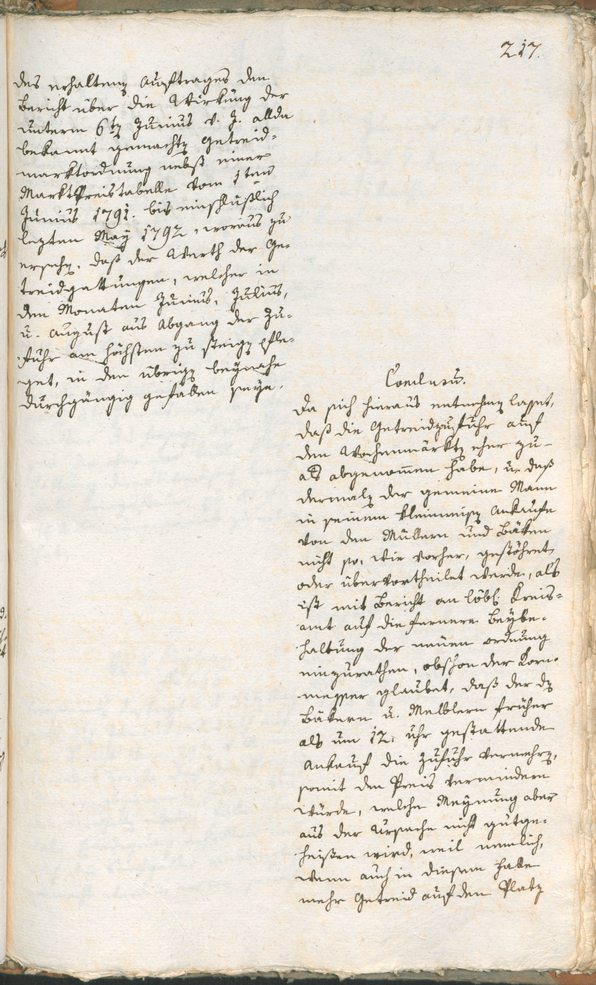 217.
des erhaltenen Auftrages den
Bericht über die Wirkung der
unterm 6t Junius v. J. allda
bekannt gemachten Getreid-
marktordnung nebst einer
MarktPreistabelle vom 1ten
Junius 1791. bis einschlüßlich
lezten May 1792, woraus zu
ersehen, daß der Werth der Ge-
treidgattungen, welcher in
den Monaten Junius, Julius,
u. August aus Abgang der Zu-
fuhr am höchsten zu steigen pfle-
get, in den übrigen beynahe
durchgängig gefallen seye.
Conclusum.
Da sich hieraus entnehmen lasset,
daß die Getreidzufuhr auf
den Wochenmärkten eher zu-
als abgenommen habe, u. daß
dermalen der gemeine Mann
in seinem kleinweisen Ankaufe
von den Müllern und Bäken
nicht so, wie vorher, gestöhret,
oder übervortheilet werde, als
ist mit Bericht an löbl. Kreis-
amt auf die fernere Beybe-
haltung der neuen Ordnung
einzurathen, obschon der Korn-
messer glaubet, daß der den
Bäkern u. Melblern früher
als um 12. Uhr gestattende
Ankauf die Zufuhr vermehren,
somit den Preis vermindern
würde, welche Meynung aber
aus der Ursache nicht gutge-
heißen wird, weil nemlich,
wenn auch in diesem Falle
mehr Getreid auf den Platz